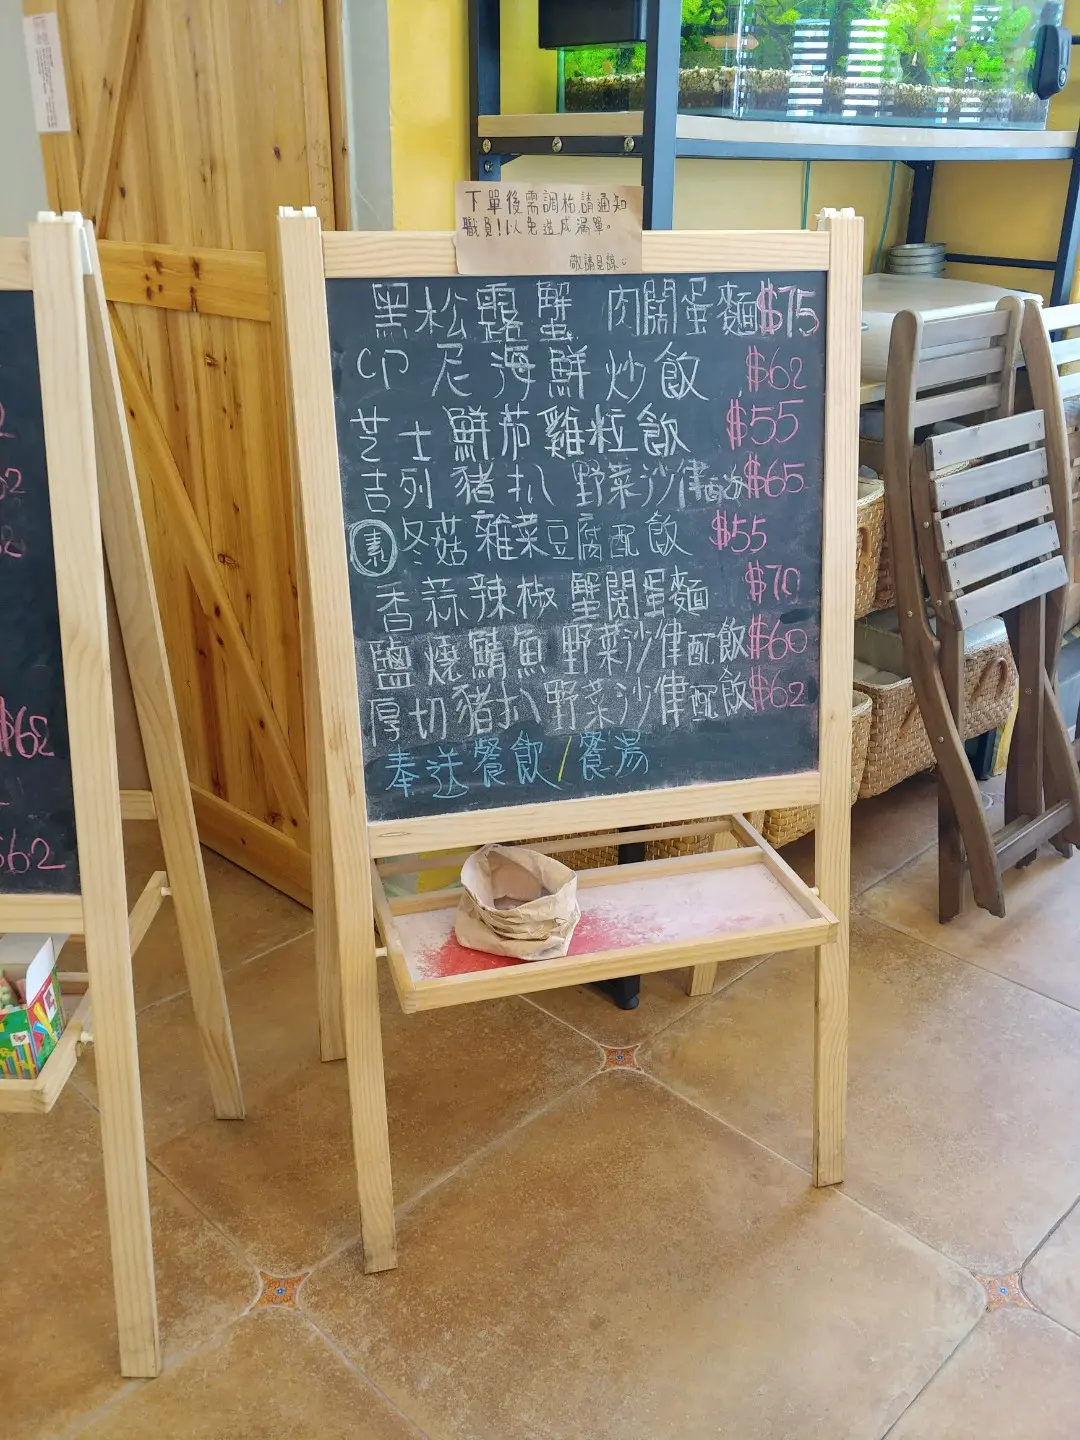 下單後需調枱請通知
職員!以免造成漏單。
敬請見諒
黑松露蟹肉闊蛋麵$75
印尼海鮮炒飯 $62
芝士鮮茄雞粒飯 $55
吉列豬扒野菜沙律配飯$65
素 冬菇雜菜豆腐配飯 $55
香蒜辣椒蟹闊蛋麵 $70
鹽燒鯖魚野菜沙律配飯$60
厚切豬扒野菜沙律配飯$62
奉送餐飲/餐湯
$62
62